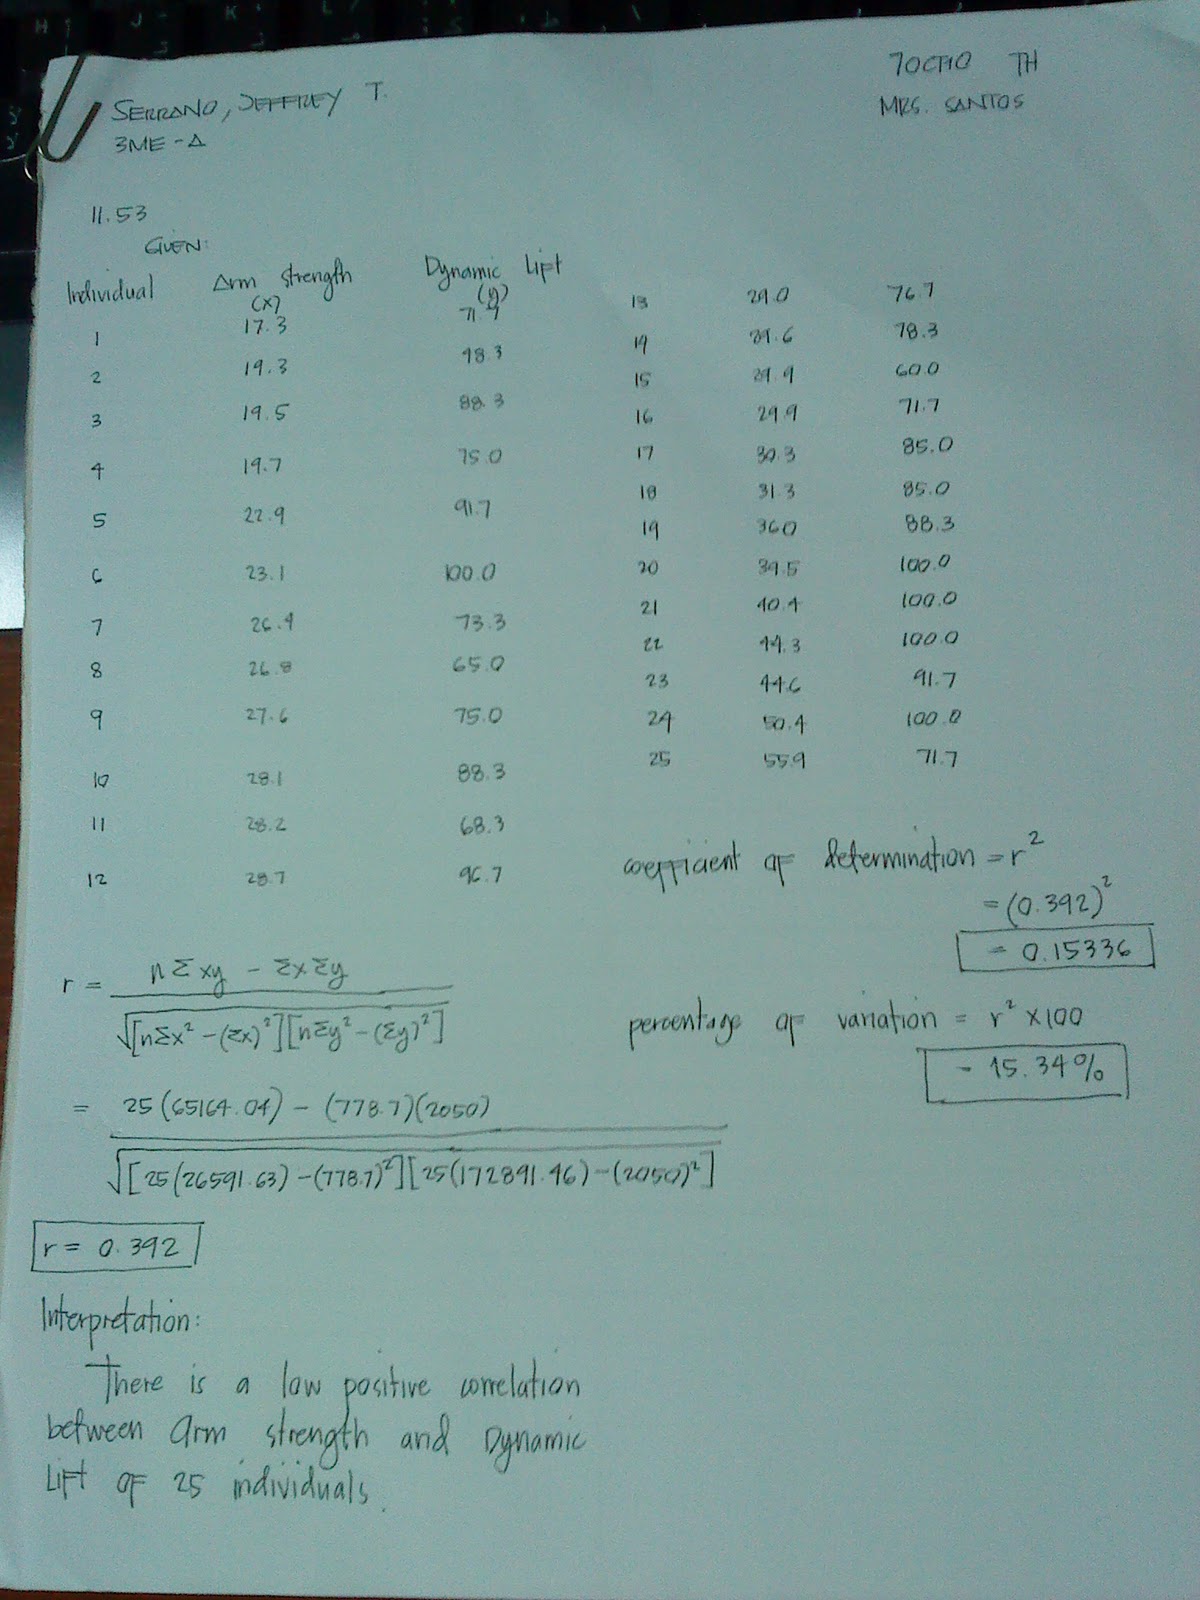 SERRANO, JEFFREY T.
3ME-A
7OCT10 TH
MRS. SANTOS
11.53
GIVEN:
Individual Arm strength (x) Dynamic Lift (y)
1 17.3 71.7
2 19.3 48.3
3 19.5 88.3
4 19.7 75.0
5 22.9 91.7
6 23.1 100.0
7 26.4 73.3
8 26.8 65.0
9 27.6 75.0
10 28.1 88.3
11 28.2 68.3
12 28.7 96.7
13 29.0 76.7
14 29.6 78.3
15 29.9 60.0
16 29.9 71.7
17 30.3 85.0
18 31.3 85.0
19 36.0 88.3
20 39.5 100.0
21 40.4 100.0
22 44.3 100.0
23 44.6 91.7
24 50.4 100.0
25 55.9 71.7
coefficient of determination = r²
= (0.392)²
= 0.15336
percentage of variation = r² x100
= 15.34%
r = nΣxy - ΣxΣy
√[nΣx² -(Σx)²][nΣy² -(Σy)²]
= 25(65164.04) - (778.7)(2050)
√[25(26591.63) -(778.7)²][25(172891.46)-(2050)²]
r = 0.392
Interpretation:
There is a low positive correlation
between arm strength and Dynamic
Lift of 25 individuals.